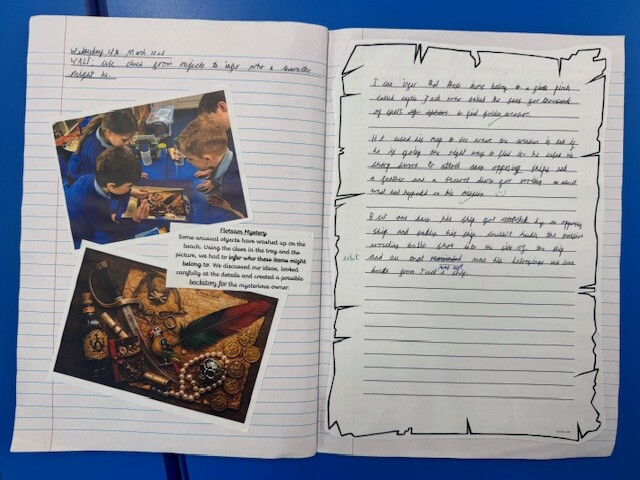 Wednesday 4th March
WALT: use clues from objects to infer who a character
might be.
Flotsam Mystery
Some unusual objects have washed up on the
beach. Using the clues in the tray and the
picture, we had to infer who these items might
belong to. We discussed our ideas, looked
carefully at the details and created a possible
backstory for the mysterious owner.
I can infer that these items belong to a pirate
called Jack who sailed the seas for thousands
of to find golden treasure.
He used his map to see where the treasure is and if
he is going the right way to find it. He used his
sharp sword to attack any opposing ships and
a feather and a secret diary for writing about
what had happened on his mission.
But one day his ship got by an opposing
ship and sadly his ship couldn't handle the
wrecking balls shot into the side of the ship
and all that was his belongings and some
from Jack's ship.